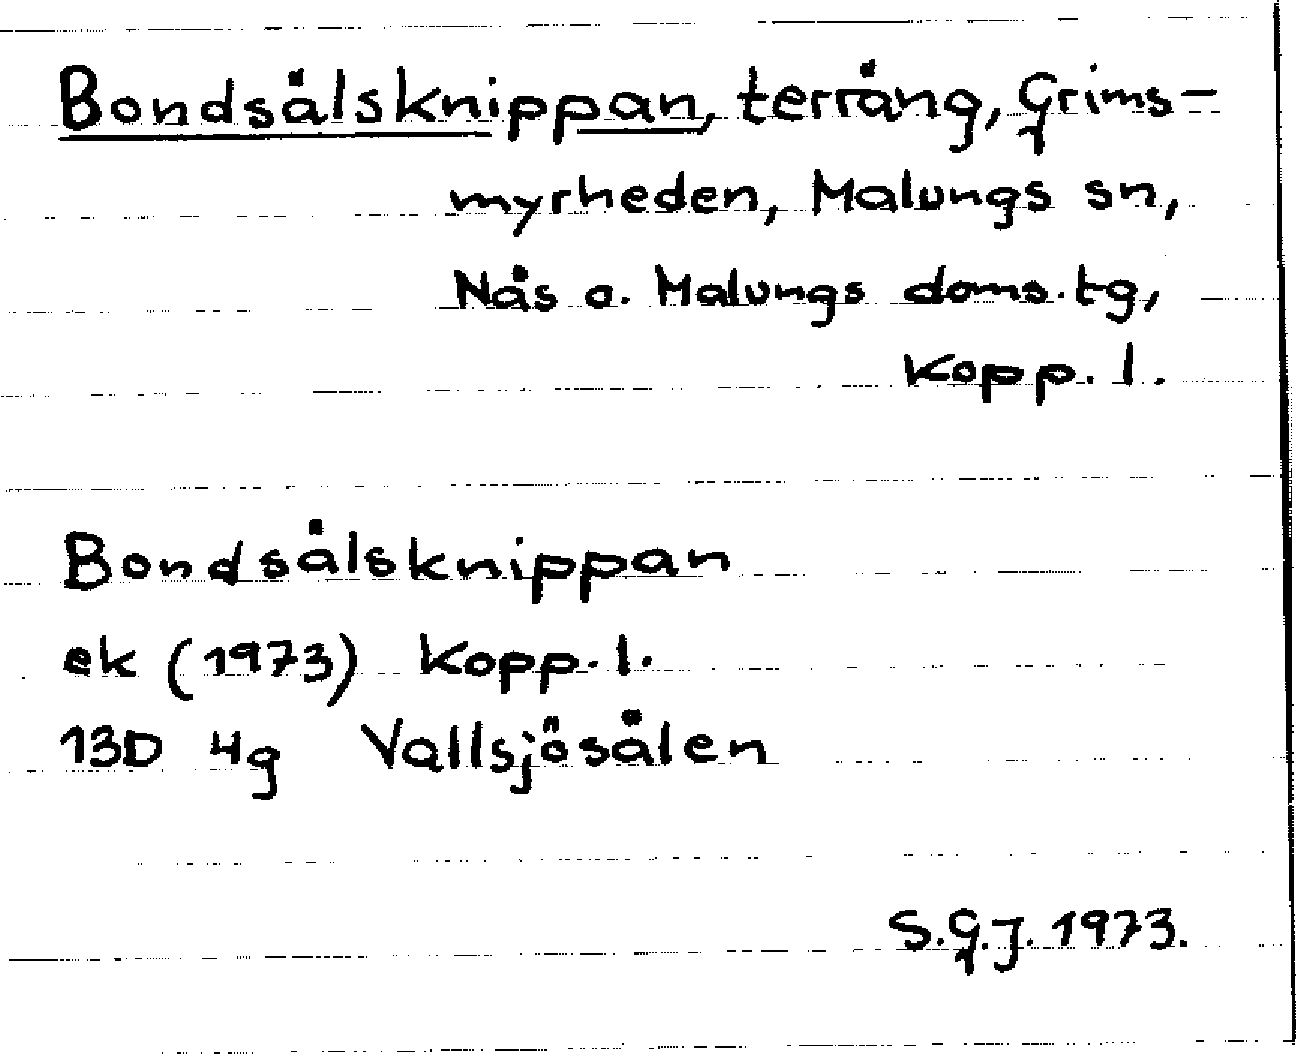 Bondsälsknippan, terräng, Grims-
myrheden, Malungs sn,
Nås o. Malungs doms.tg,
Kopp. l.
Bondsälsknippan
ek (1973) Kopp. l.
13D 4g Vallsjösälen
S.G.J. 1973.